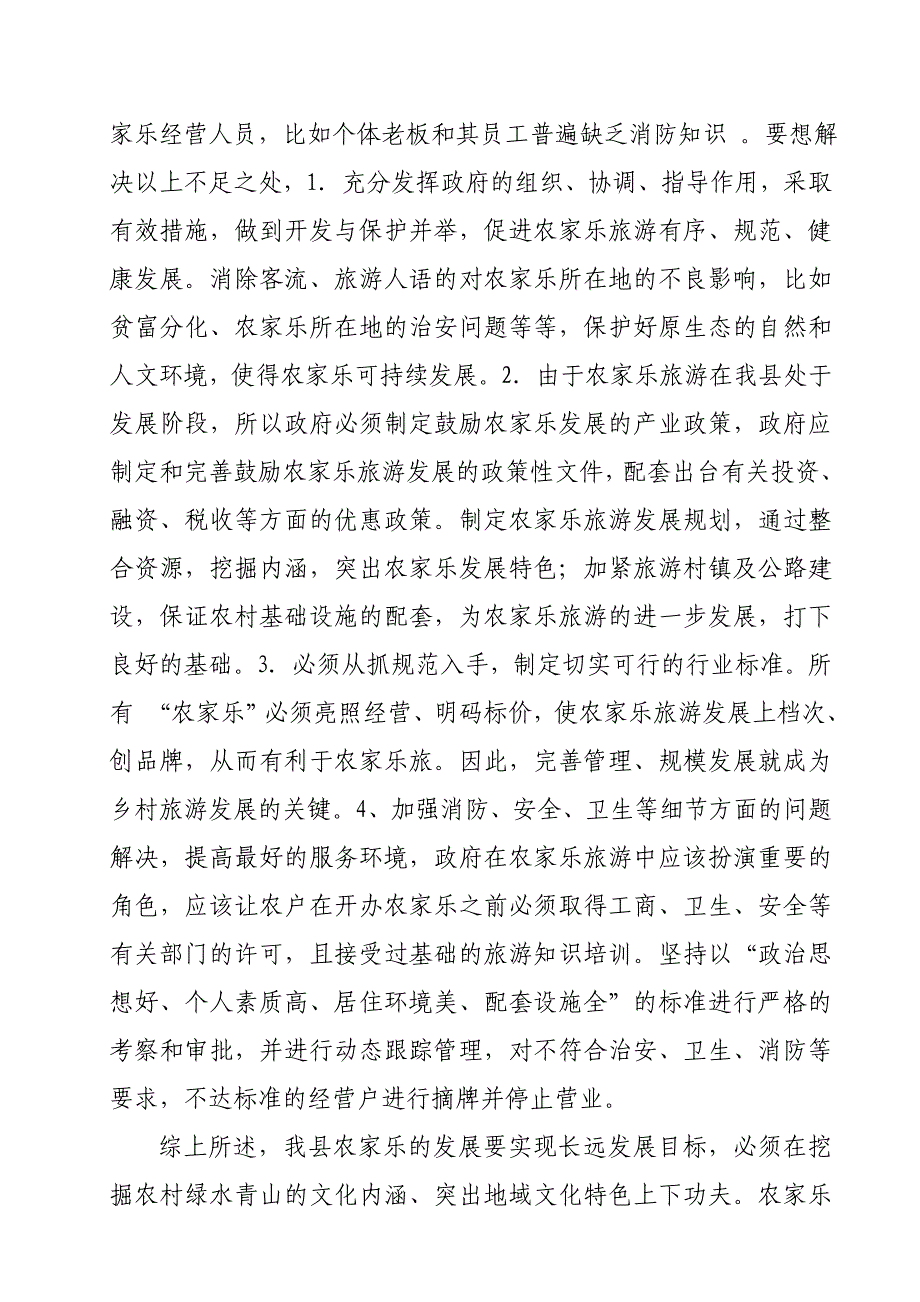 家乐经营人员，比如个体老板和其员工普遍缺乏消防知识 。要想解
决以上不足之处，1．充分发挥政府的组织、协调、指导作用，采取
有效措施，做到开发与保护并举，促进农家乐旅游有序、规范、健
康发展。消除客流、旅游人语的对农家乐所在地的不良影响，比如
贫富分化、农家乐所在地的治安问题等等，保护好原生态的自然和
人文环境，使得农家乐可持续发展。2．由于农家乐旅游在我县处于
发展阶段，所以政府必须制定鼓励农家乐发展的产业政策，政府应
制定和完善鼓励农家乐旅游发展的政策性文件，配套出台有关投资、
融资、税收等方面的优惠政策。制定农家乐旅游发展规划，通过整
合资源，挖掘内涵，突出农家乐发展特色；加紧旅游村镇及公路建
设，保证农村基础设施的配套，为农家乐旅游的进一步发展，打下
良好的基础。3．必须从抓规范入手，制定切实可行的行业标准。所
有 “农家乐”必须亮照经营、明码标价，使农家乐旅游发展上档次、
创品牌，从而有利于农家乐旅。因此，完善管理、规模发展就成为
乡村旅游发展的关键。4、加强消防、安全、卫生等细节方面的问题
解决，提高最好的服务环境，政府在农家乐旅游中应该扮演重要的
角色，应该让农户在开办农家乐之前必须取得工商、卫生、安全等
有关部门的许可，且接受过基础的旅游知识培训。坚持以“政治思
想好、个人素质高、居住环境美、配套设施全”的标准进行严格的
考察和审批，并进行动态跟踪管理，对不符合治安、卫生、消防等
要求，不达标准的经营户进行摘牌并停止营业。
综上所述，我县农家乐的发展要实现长远发展目标，必须在挖
掘农村绿水青山的文化内涵、突出地域文化特色上下功夫。农家乐